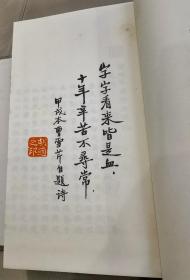 字字看来皆是血，
十年辛苦不寻常．
甲戌本曹雪芹自题诗